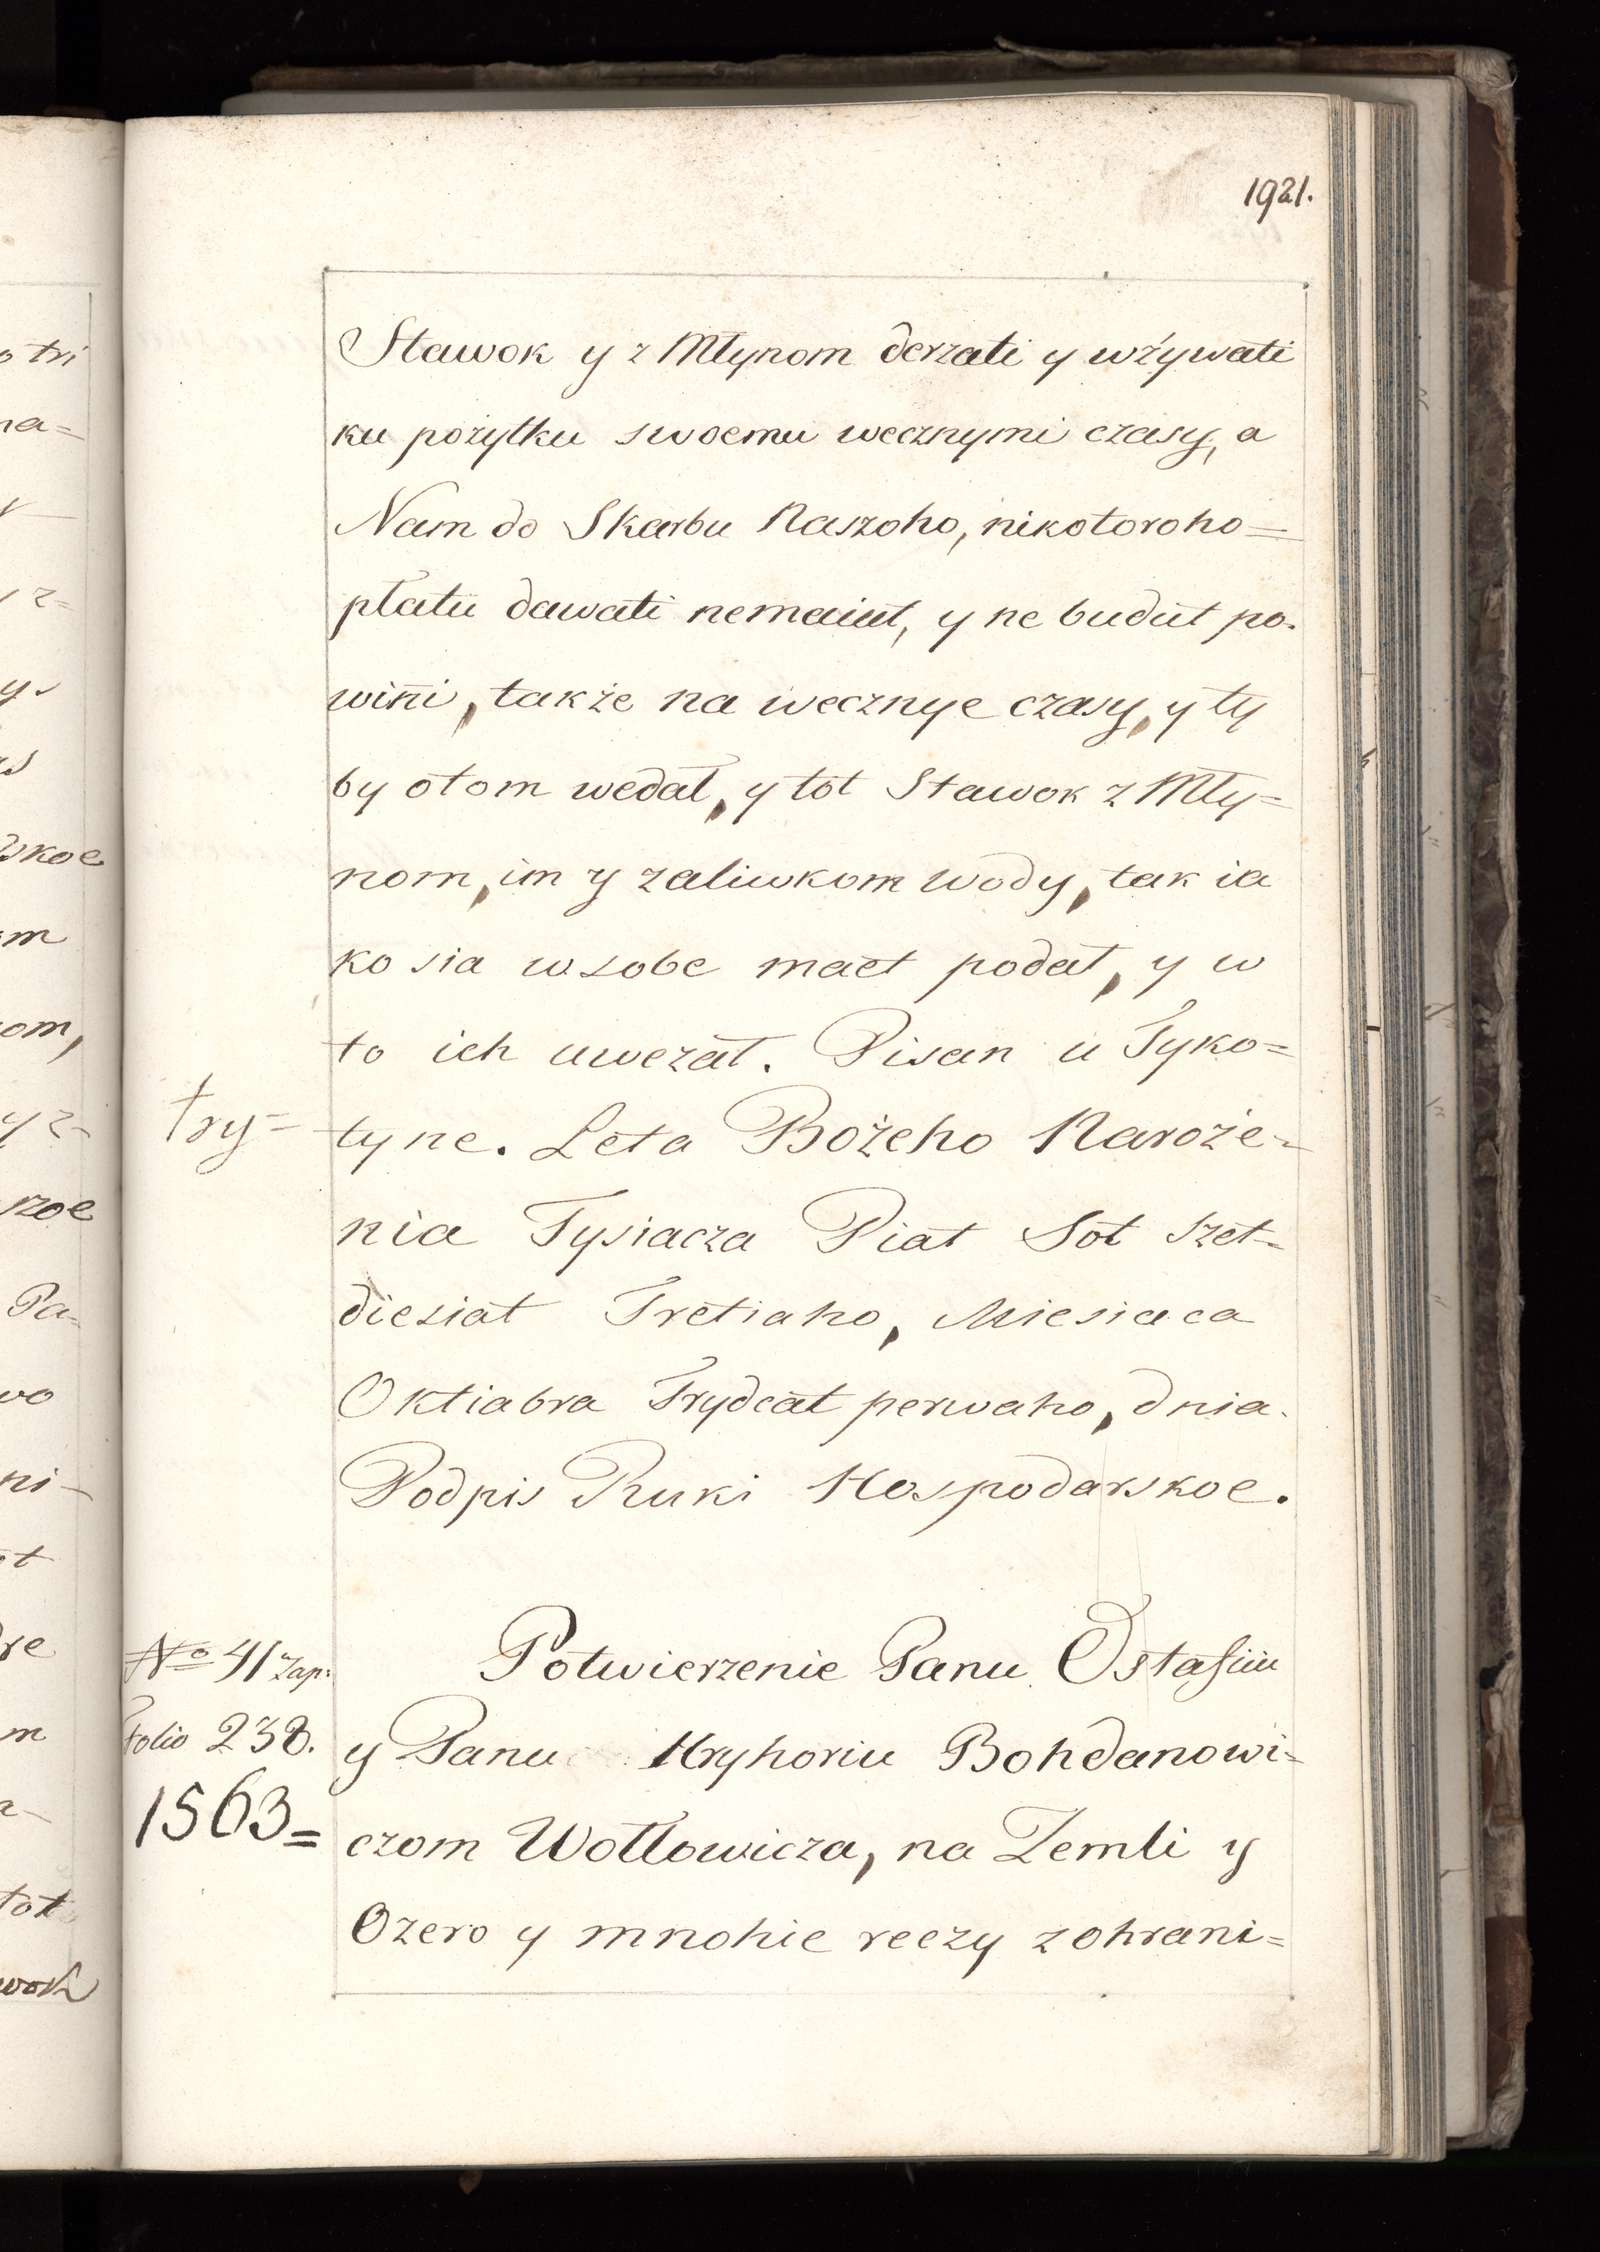 1921.
Stawok y z Młynom derzati y wżywati
ku pożytku swoemu wecznymi czasy, a
Nam do Skarbu Naszoho, nikotoroho=
płatu dawati nemaiut, y ne budut po-
wińi, także na wecznye czasy, y ty
by otom wedał, y tot Stawok z Mły=
nom, im y zaliwkom wody, tak ia
ko sia w sobe maet podał, y w
to ich uwezał. Pisan u Tyko=
try= tyne. Leta Bożeho Naroże-
nia Tysiacza Piat Sot szet-
diesiat Tretiaho, Miesiaca
Oktiabra Trydcat perwaho, dnia.
Podpis Ruki Hospodarskoe.
No 41 zap: Potwierzenie Panu Ostafiiu
Folio 238. y Panu Hryhoriu Bohdanowi=
1563= czom Wołłowicza, na Zemli y
Ozero y mnohie reczy zohrani=